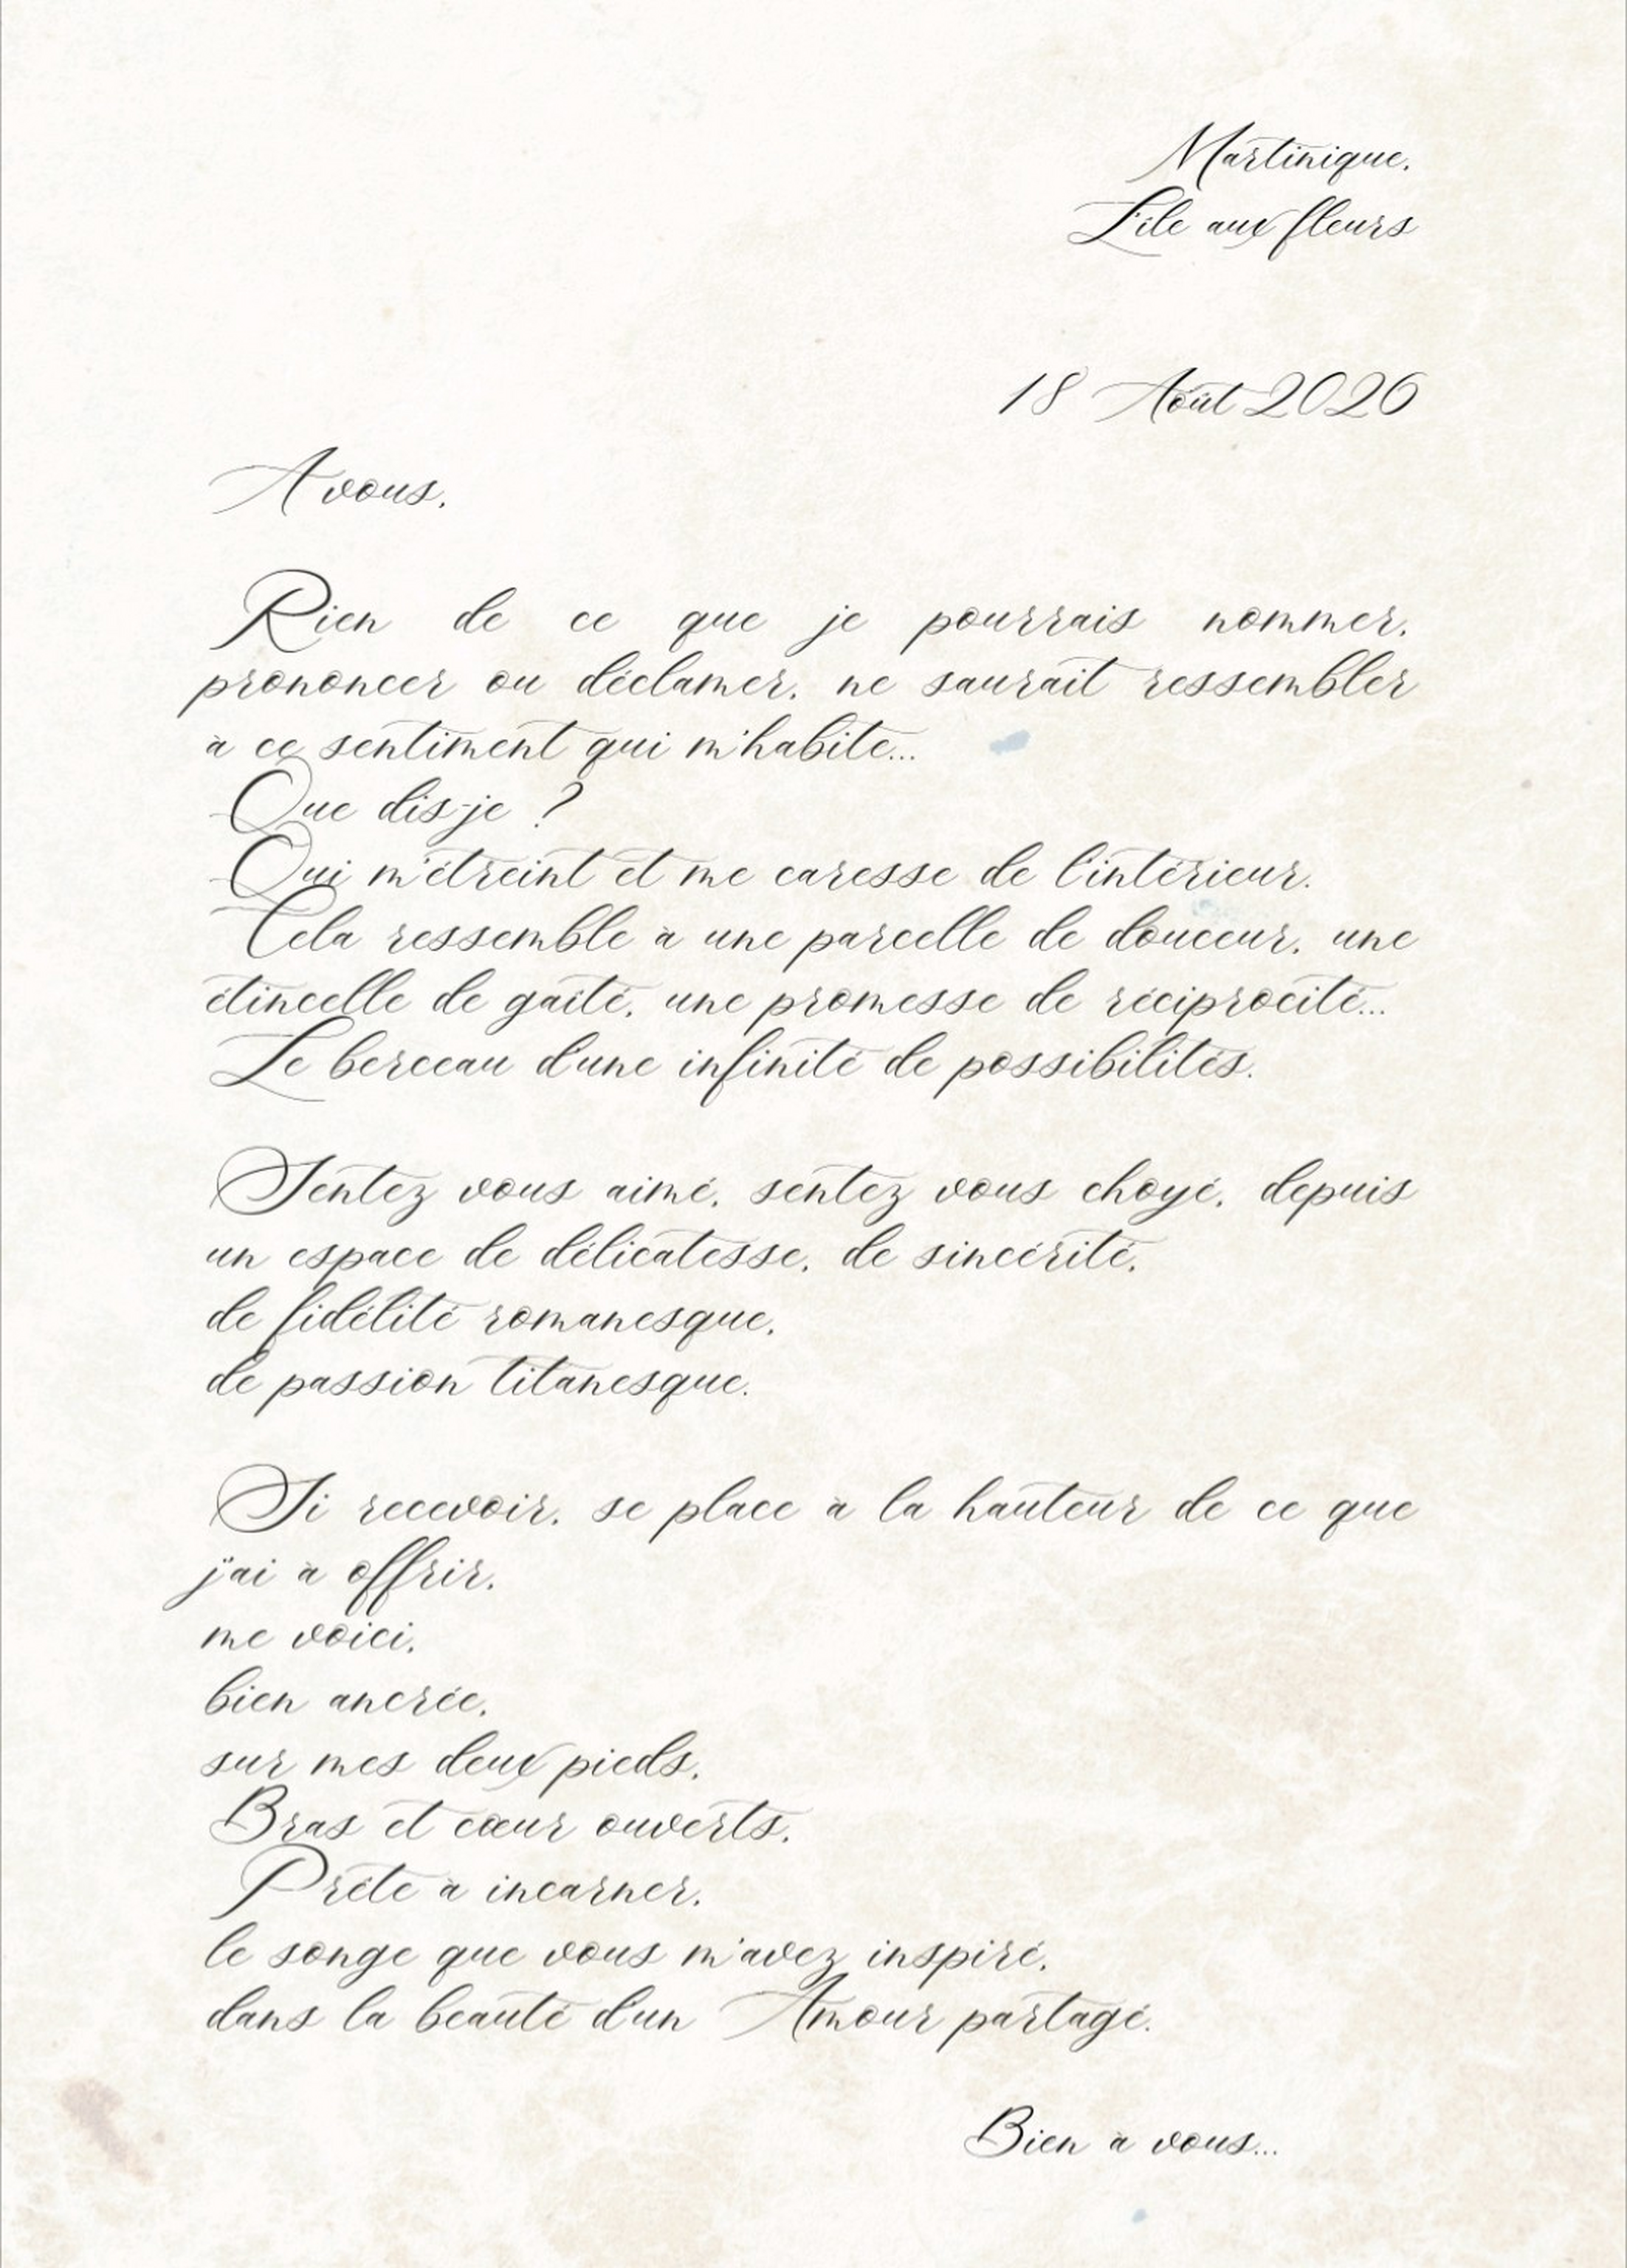 Martinique,
L'île aux fleurs
18 Août 2026
A vous,
Rien de ce que je pourrais nommer,
prononcer ou déclamer, ne saurait ressembler
à ce sentiment qui m'habite...
Que dis-je ?
Qui m'étreint et me caresse de l'intérieur.
Cela ressemble à une parcelle de douceur, une
étincelle de gaité, une promesse de réciprocité...
Le berceau d'une infinité de possibilités.
Sentez vous aimé, sentez vous choyé, depuis
un espace de délicatesse, de sincérité,
de fidélité romanesque,
de passion titanesque.
Si recevoir, se place à la hauteur de ce que
j'ai à offrir,
me voici,
bien ancrée,
sur mes deux pieds,
Bras et cœur ouverts,
Prête à incarner,
le songe que vous m'avez inspiré,
dans la beauté d'un Amour partagé.
Bien à vous...